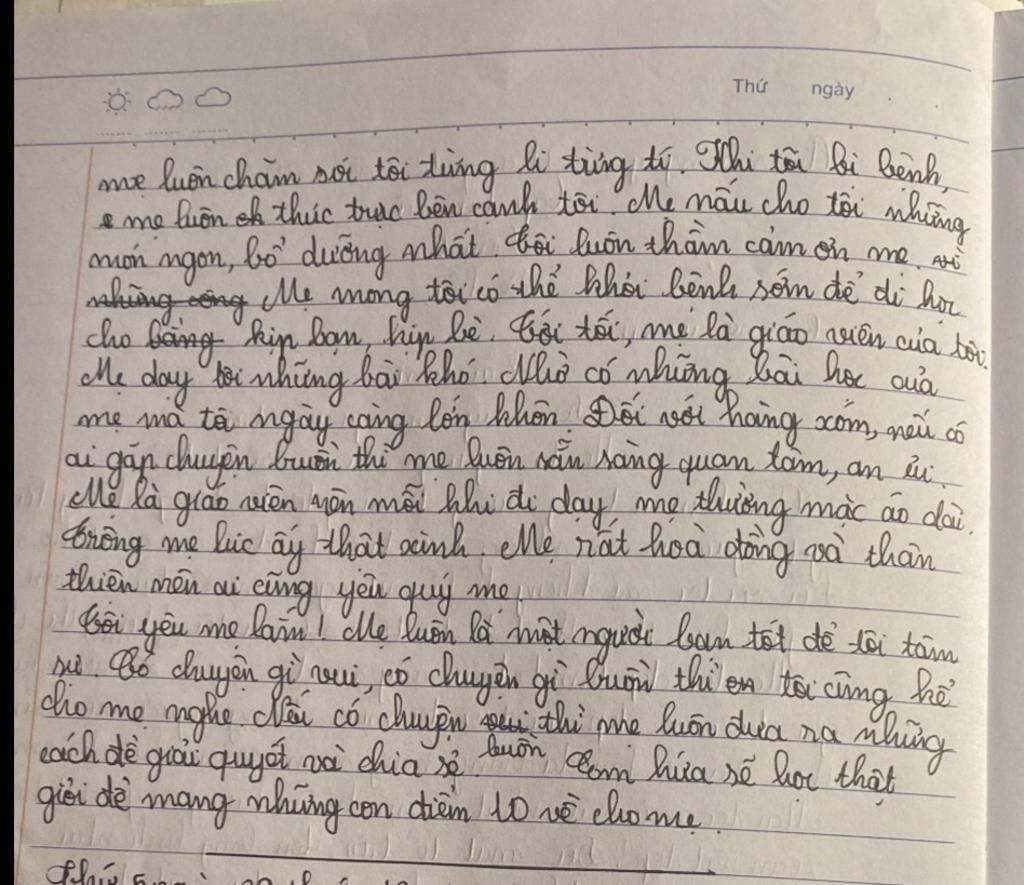 Thứ ngày
mẹ luôn chăm sóc tôi từng li từng tí. Khi tôi bị bệnh,
mẹ luôn thức trực bên cạnh tôi. Mẹ nấu cho tôi những
món ngon, bổ dưỡng nhất. Tôi luôn thầm cảm ơn mẹ vì
những công Mẹ mong tôi có thể khỏi bệnh sớm để đi học
cho bằng kịp bạn, kịp bè. Tối tối, mẹ là giáo viên của tôi.
Mẹ dạy tôi những bài khó. Nhờ có những bài học của
mẹ mà tô ngày càng lớn khôn. Đối với hàng xóm, nếu có
ai gặp chuyện buồn thì mẹ luôn sẵn sàng quan tâm, an ủi.
Mẹ là giáo viên nên mỗi khi đi dạy mẹ thường mặc áo dài.
Trông mẹ lúc ấy thật xinh. Mẹ rất hoà đồng và thân
thiện nên ai cũng yêu quý mẹ.
Tôi yêu mẹ lắm! Mẹ luôn là một người bạn tốt để tôi tâm
sự. Có chuyện gì vui, có chuyện gì buồn thì em tôi cũng kể
cho mẹ nghe. Nếu có chuyện vui thì mẹ luôn đưa ra những
cách để giải quyết và chia sẻ. buồn Em hứa sẽ học thật
giỏi để mang những con điểm 10 về cho mẹ.